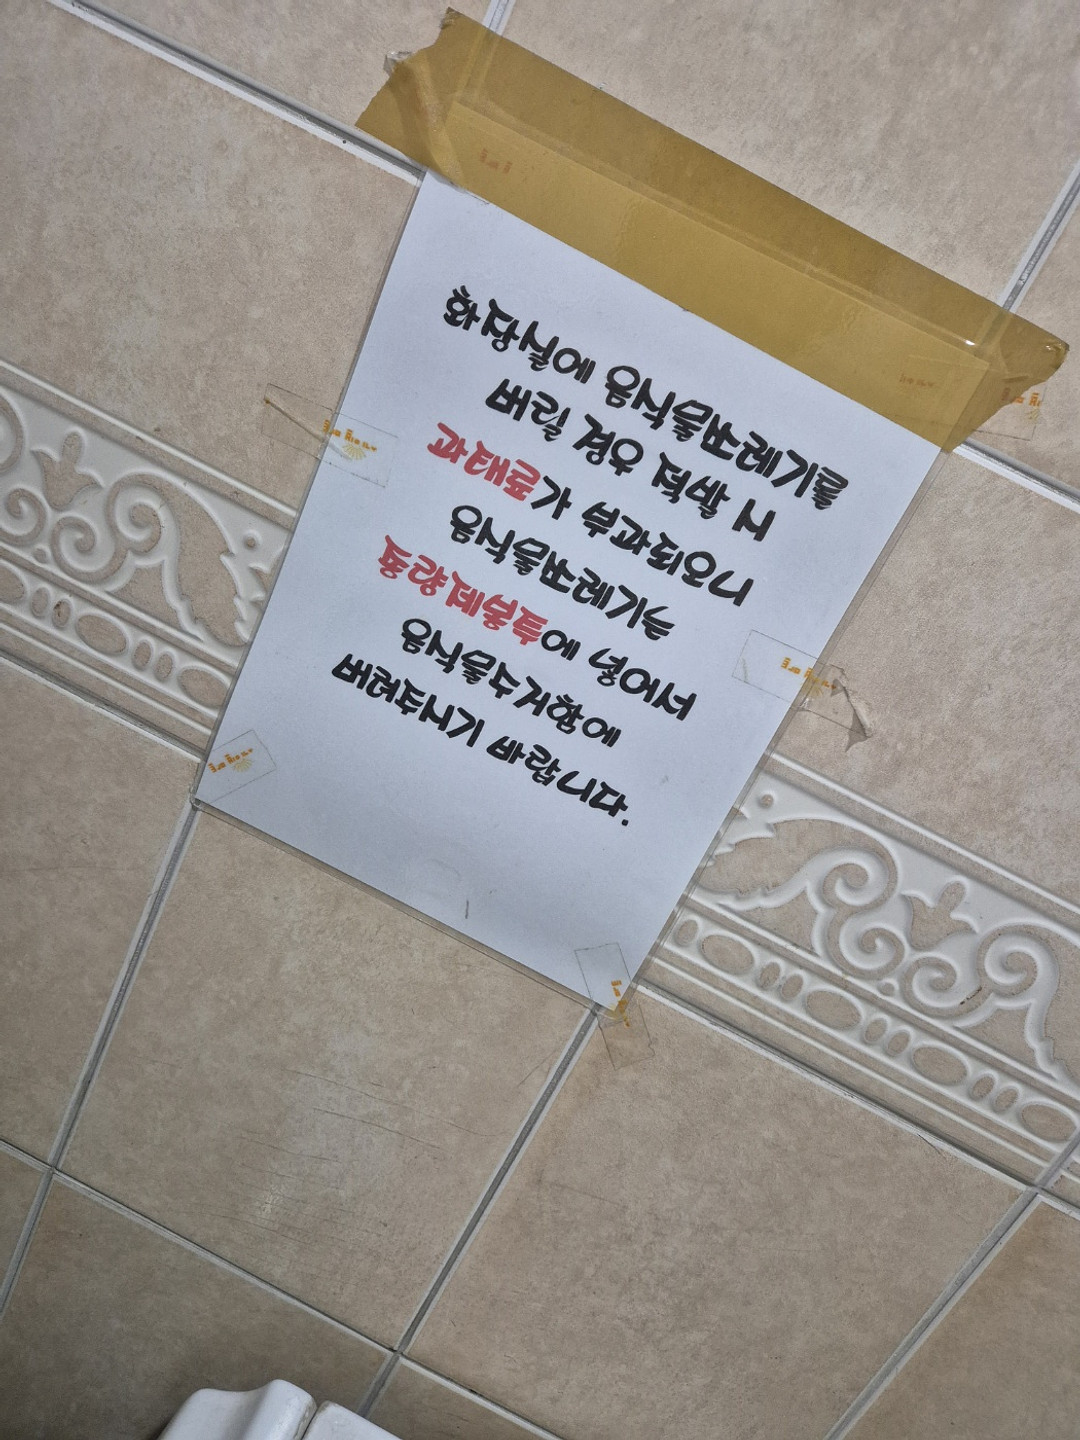 화장실에 음식물쓰레기를
버릴 경우 적발 시
과태료가 부과되오니
음식물쓰레기는
종량제봉투에 넣어서
음식물수거함에
버려주시기 바랍니다.